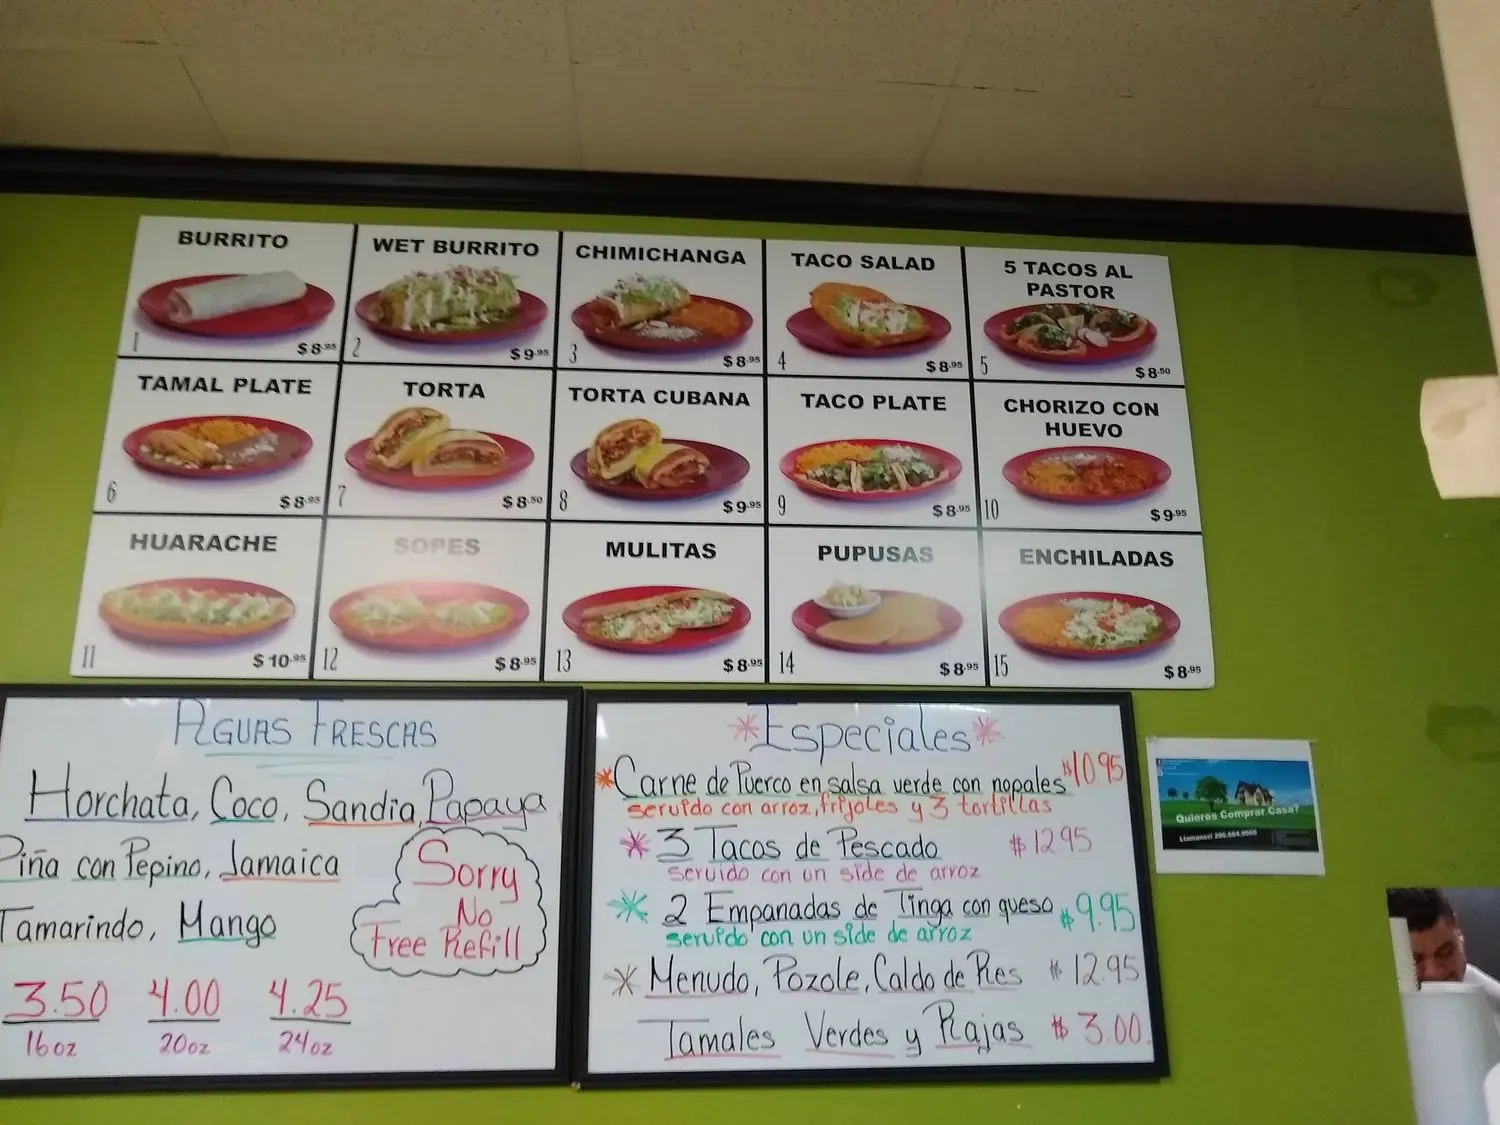 BURRITO
1
$8.95
WET BURRITO
2
$9.95
CHIMICHANGA
3
$8.95
TACO SALAD
4
$8.95
5 TACOS AL
PASTOR
5
$8.50
TAMAL PLATE
6
$8.95
TORTA
7
$8.50
TORTA CUBANA
8
$9.95
TACO PLATE
9
$8.95
CHORIZO CON
HUEVO
10
$9.95
HUARACHE
11
$10.95
SOPES
12
$8.95
MULITAS
13
$8.95
PUPUSAS
14
$8.95
ENCHILADAS
15
$8.95
AGUAS FRESCAS
Horchata, Coco, Sandia, Papaya
Piña con Pepino, Jamaica
Tamarindo, Mango
Sorry
No
Free Refill
3.50 4.00 4.25
16oz 20oz 24oz
*Especiales*
*Carne de Puerco en salsa verde con nopales $10.95
servido con arroz, frijoles y 3 tortillas
*3 Tacos de Pescado $12.95
servido con un side de arroz
*2 Empanadas de Tinga con queso $9.95
servido con un side de arroz
*Menudo, Pozole, Caldo de Res $12.95
Tamales Verdes y Rajas $3.00
Quieres Comprar Casa?